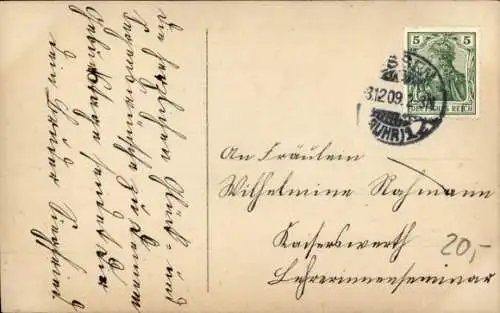 Die herzlichsten Glück- und
Segenswünsche zu Deinem
Geburtstage sendet Dir
Dein
5
5
DEUTSCHES REICH
ESSEN
8.12.09.
(RUHR)
An Fräulein
Wilhelmine Rahmann
Kaiserswerth
Lehrerinnenseminar
20,-